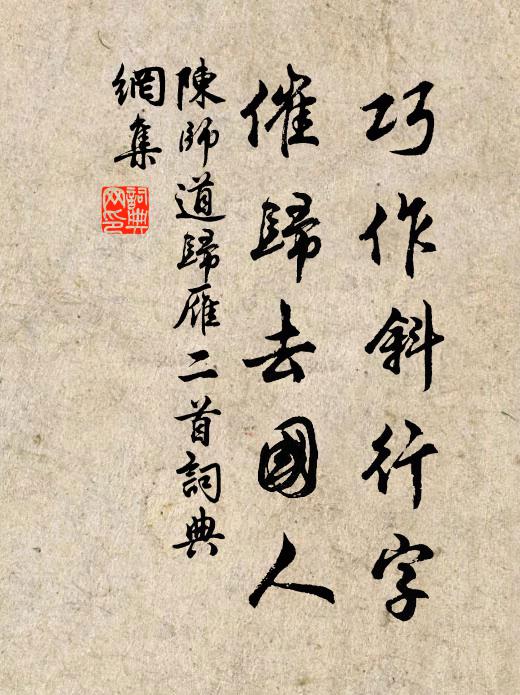 巧作斜行字
催歸去國人
陳師道歸雁二首詞典
網集
詞典
网印